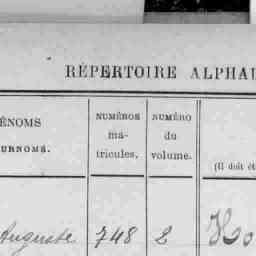 RÉPERTOIRE ALPHA
ÉNOMS
URNOMS.
NUMÉROS
ma-
tricules.
NUMÉRO
du
volume.
(Il doit êt
Auguste 748 2